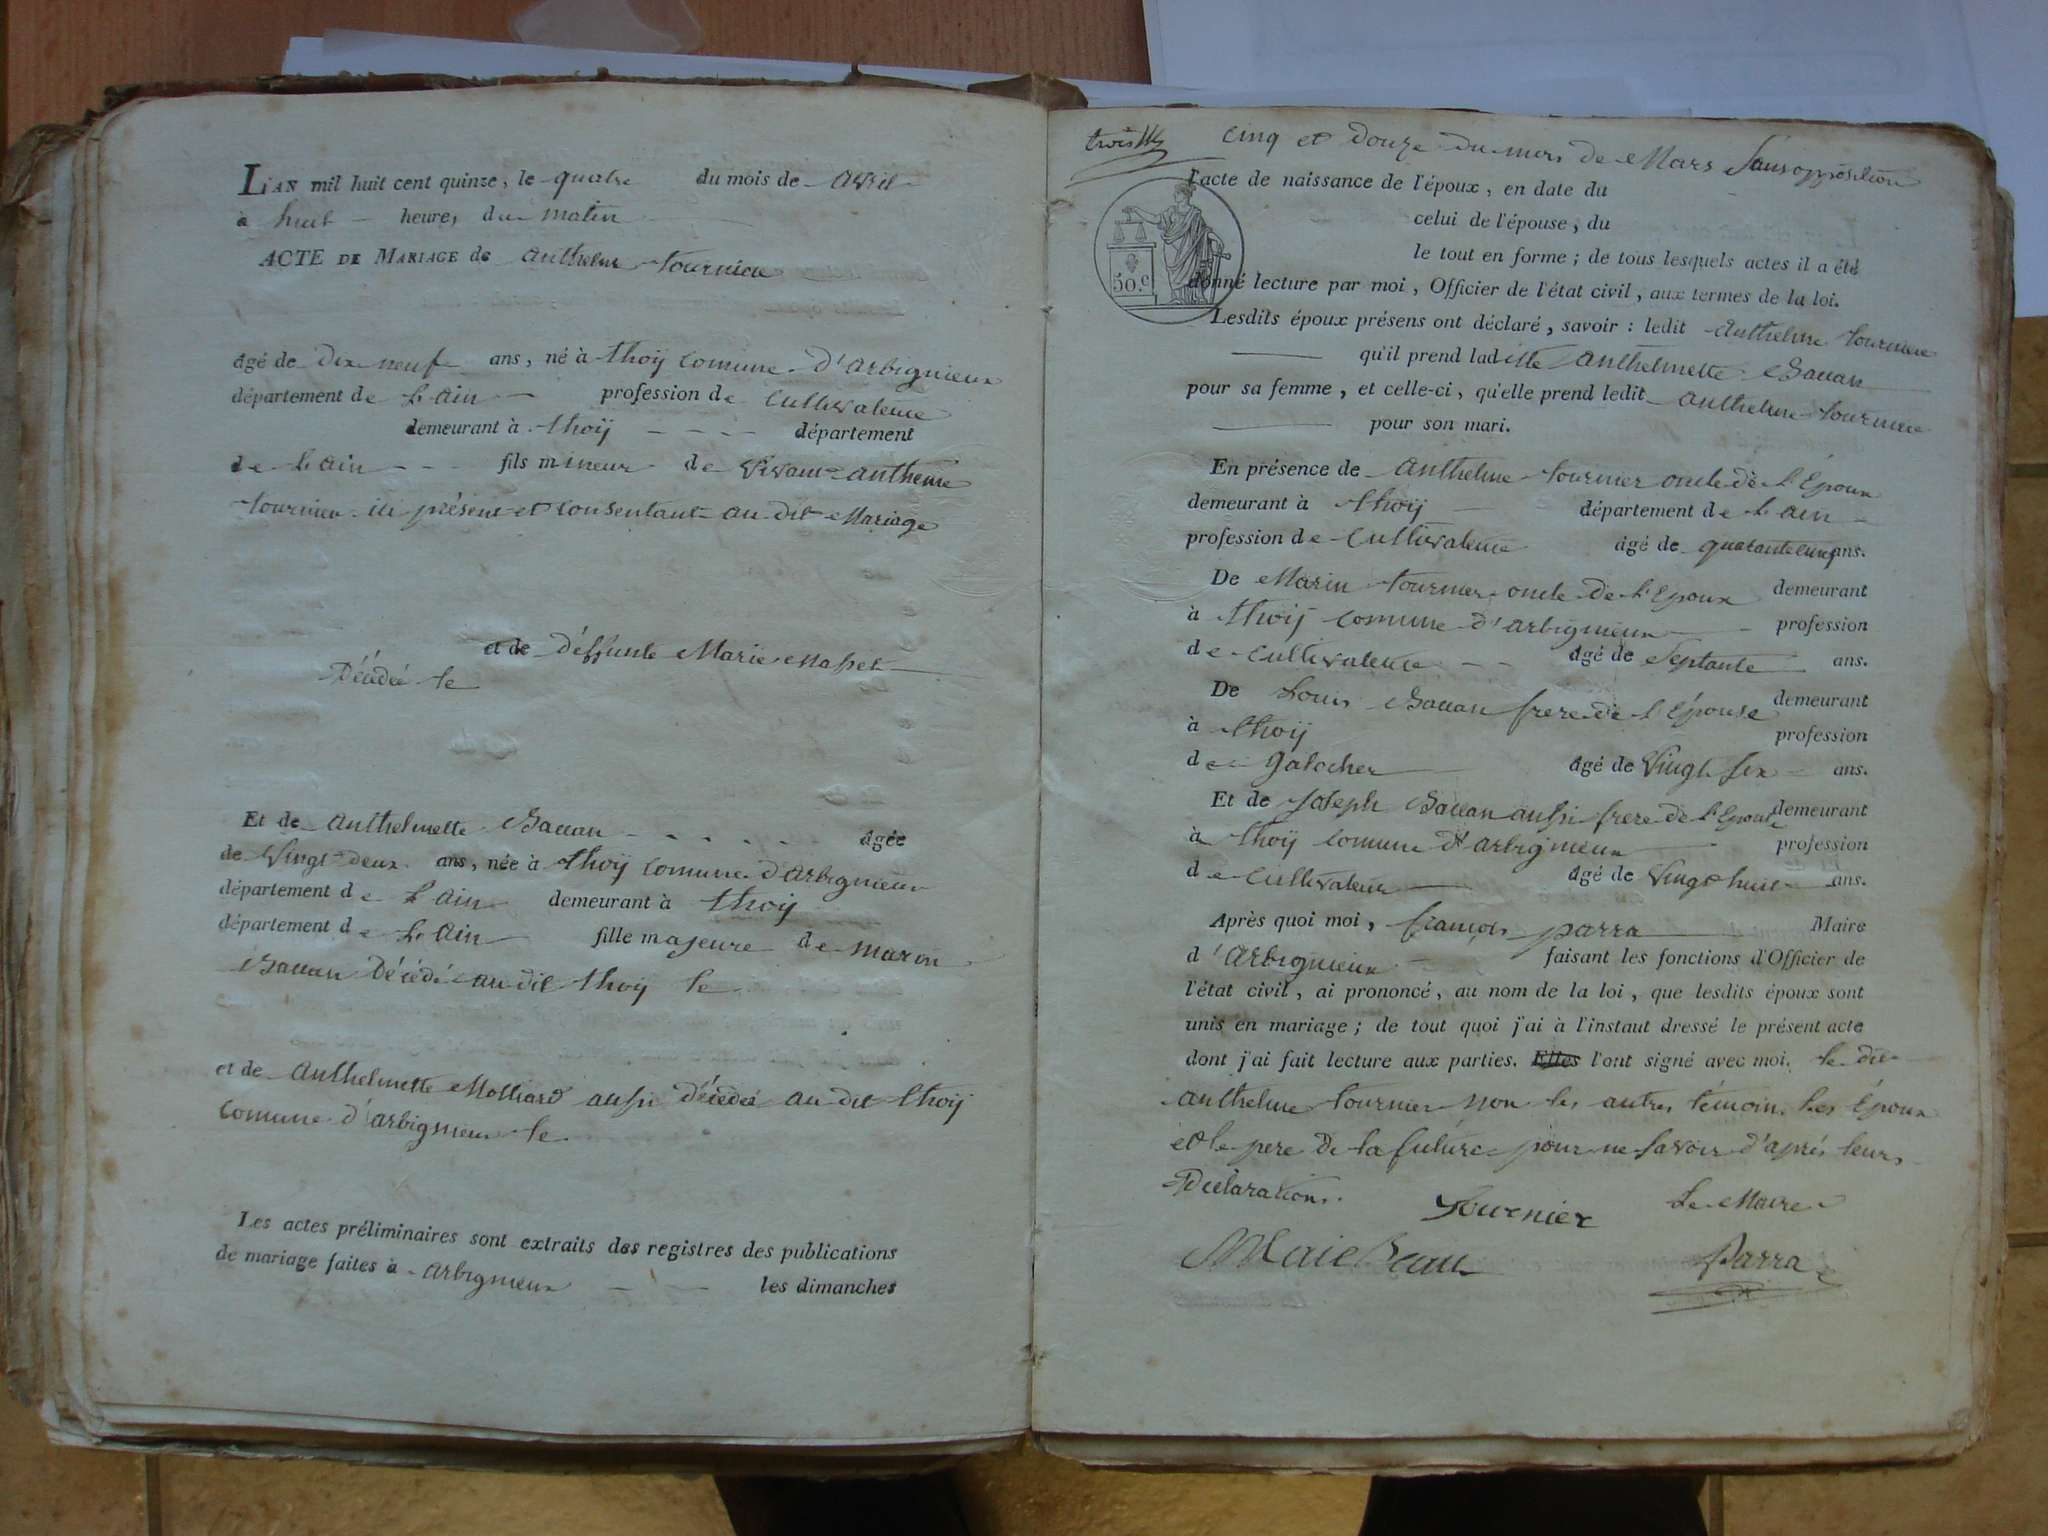 L'AN mil huit cent quinze, le quatre du mois de avril
à huit heures du matin
ACTE DE MARIAGE de anthelme tournier
agé de dix neuf ans, né à thoÿ comune d'arbignieux
département de L'ain profession de cultivateur
demeurant à thoÿ département
de L'ain fils mineur de vivant anthelme
tournier ici présent et consentant au dit Mariage
et de déffunte Marie Masset
Décédé le
Et de anthelmette Bacian agée
de vingt deux ans, née à thoÿ comune d'arbignieux
département de L'ain demeurant à thoÿ
département de L'ain fille majeure de marin
Décédé au dit thoÿ le
et de anthelmette Molliard aussi décédée au dit thoÿ
comune d'arbignieux le
Les actes préliminaires sont extraits des registres des publications
de mariage faites à arbignieux les dimanches
cinq et douze du mois de Mars sans opposition
50.c
l'acte de naissance de l'époux, en date du
celui de l'épouse, du
le tout en forme; de tous lesquels actes il a été
donné lecture par moi, Officier de l'état civil, aux termes de la loi.
Lesdits époux présens ont déclaré, savoir : ledit anthelme tournier
qu'il prend ladite anthelmette
pour sa femme, et celle-ci, qu'elle prend ledit anthelme tournier
pour son mari.
En présence de anthelme tournier oncle de l'Époux
demeurant à thoÿ département de L'ain
profession de cultivateur agé de quarante cinq ans.
De Marin tournier oncle de l'Époux demeurant
à thoÿ comune d'arbignieux profession
de cultivateur agé de septante ans.
De Louis frere de l'Épouse demeurant
à thoÿ profession
de galocher agé de vingt six ans.
Et de Joseph aussi frere de l'Épouse demeurant
à thoÿ comune d'arbignieux profession
de cultivateur agé de vingt huit ans.
Après quoi moi, françois parra Maire
d'arbignieux faisant les fonctions d'Officier de
l'état civil, ai prononcé, au nom de la loi, que lesdits époux sont
unis en mariage; de tout quoi j'ai à l'instaut dressé le présent acte
dont j'ai fait lecture aux parties. Elles l'ont signé avec moi. le dit
anthelme tournier non les autres témoin les Époux
et le pere de la future pour ne savoir d'après leurs
Déclarations.
Tournier Le Maire
Parra